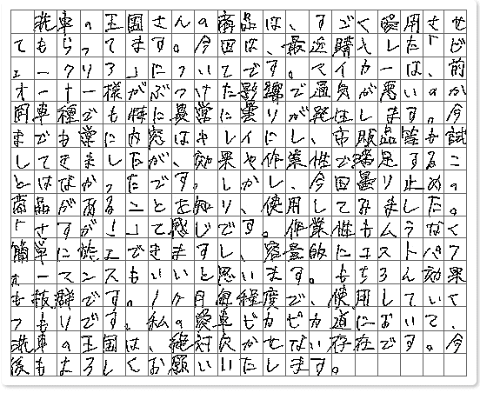 洗車の王国さんの商品は、すごく愛用させ
てもらってます。今回は、最近購入した「ビ
ュークリア」についてです。マイカーは、前
オーナー様がぶつけた影響で通気が悪いのか
同車種でも特に異常に曇りが発生します。今
までも常に内窓はキレイにし、市販品等も試
してきましたが、効果や作業性で満足するこ
とはなかったです。しかし、今回曇り止めの
商品があることを知り、使用してみました。
「さすが!」て感じです。作業性もムラなく
簡単に施工できますし、容量的にコストパフ
ォーマンスもいいと思います。もちろん効果
も抜群です。1ヶ月毎程度で、使用していく
つもりです。私の愛車ピカピカ道において、
洗車の王国は、絶対欠かせない存在です。今
後もよろしくお願いいたします。